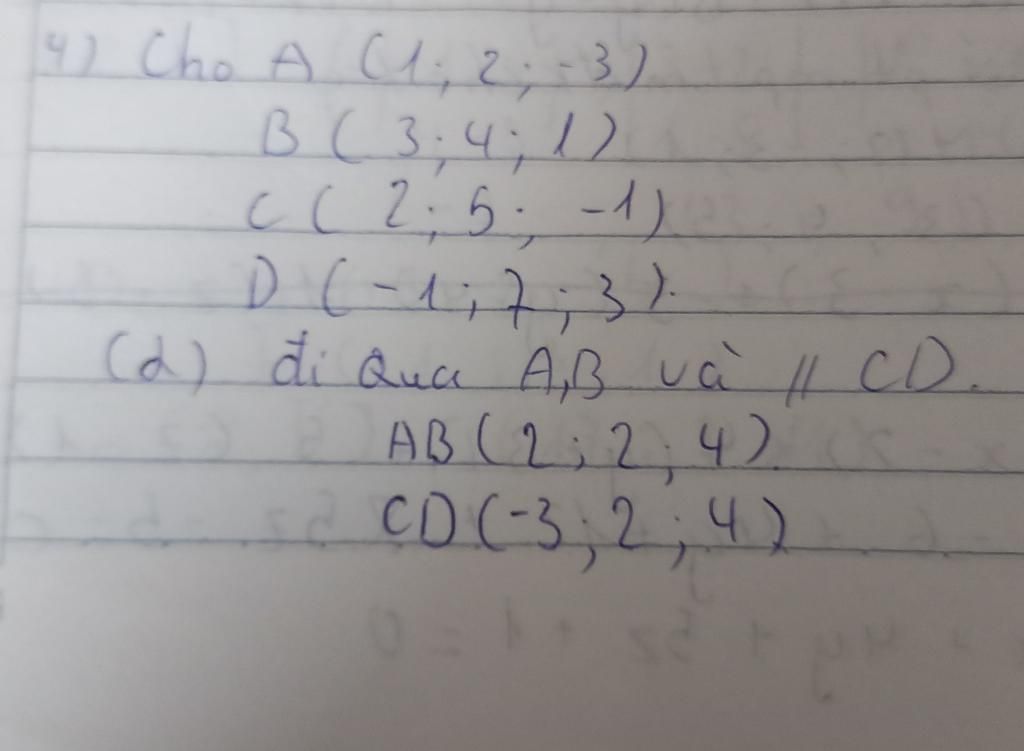 4) Cho A (1; 2; -3)
B (3; 4; 1)
C (2; 5; -1)
D (-1; 7; 3).
(α) đi qua A,B và // CD.
AB (2; 2; 4)
CD (-3; 2; 4)